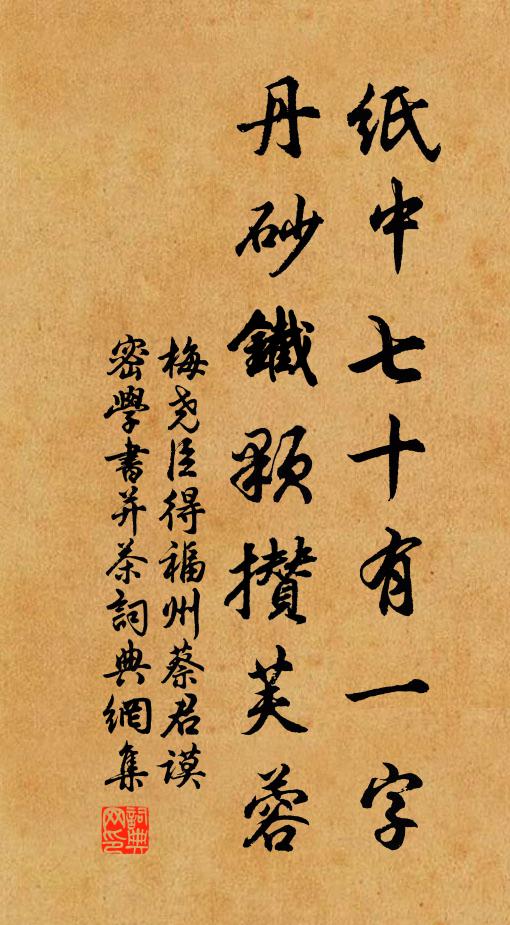 紙中七十有一字
丹砂鐵顆攢芙蓉
梅尧臣得福州蔡君謨
密學書并茶詞典網集
詞典网印